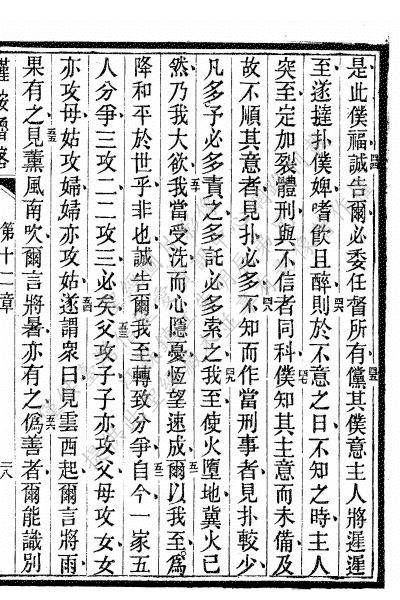 是此僕福誠告爾必委任督所有儻其僕意主人將遲遲
至遂撻扑僕婢嗜飲且醉則於不意之日不知之時主人
突至定加裂體刑與不信者同科僕知其主意而未備及
故不順其意者見扑必多不知而作當刑事者見扑較少
凡多予必多責之多託必多索之我至使火墮地冀火已
然乃我大欲我當受洗而心隱憂恆望速成爾以我至爲
降和平於世乎非也誠告爾我至轉致分爭自今一家五
人分爭三攻二二攻三必矣父攻子子亦攻父母攻女女
亦攻母姑攻婦婦亦攻姑遂謂衆曰見雲西起爾言將雨
果有之見薰風南吹爾言將暑亦有之僞善者爾能識別
第十二章
二八